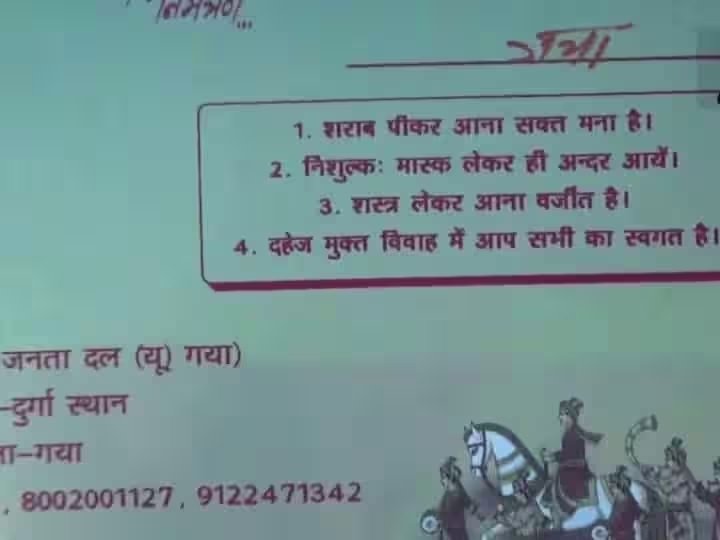 निमंत्रण...
गया
1. शराब पीकर आना सक्त मना है।
2. निशुल्कः मास्क लेकर ही अन्दर आयें।
3. शस्त्र लेकर आना वर्जीत है।
4. दहेज मुक्त विवाह में आप सभी का स्वगत है।
जनता दल (यू) गया)
–दुर्गा स्थान
–गया
, 8002001127, 9122471342